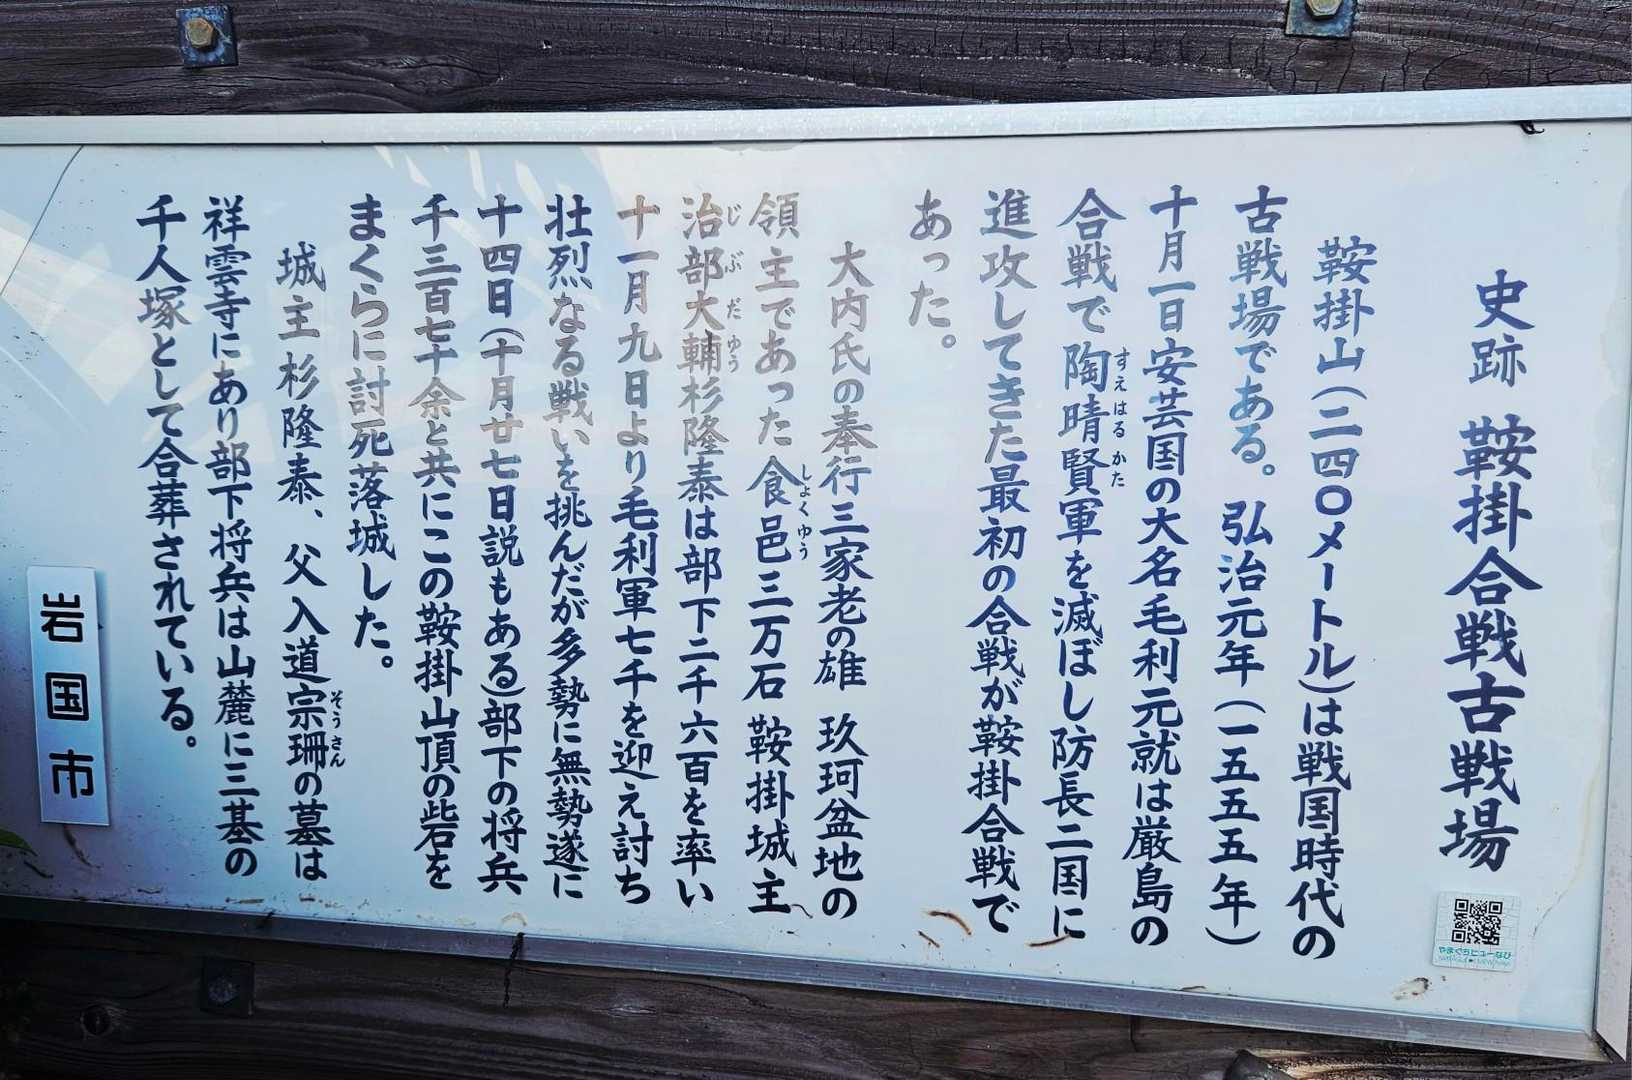 史跡 鞍掛合戦古戦場
鞍掛山(二四〇メートル)は戦国時代の
古戦場である。弘治元年(一五五五年)
十月一日安芸国の大名毛利元就は厳島の
合戦で陶晴賢軍を滅ぼし防長二国に
すえはるかた
進攻してきた最初の合戦が鞍掛合戦で
あった。
大内氏の奉行三家老の雄 玖珂盆地の
領主であった食邑三万石 鞍掛城主
しょくゆう
治部大輔杉隆泰は部下二千六百を率い
じぶだゆう
十一月九日より毛利軍七千を迎え討ち
壮烈なる戦いを挑んだが多勢に無勢遂に
十四日(十月廿七日説もある)部下の将兵
千三百七十余と共にこの鞍掛山頂の砦を
まくらに討死落城した。
城主 杉隆泰、父入道宗珊の墓は
そうさん
祥雲寺にあり部下将兵は山麓に三基の
千人塚として合葬されている。
岩国市